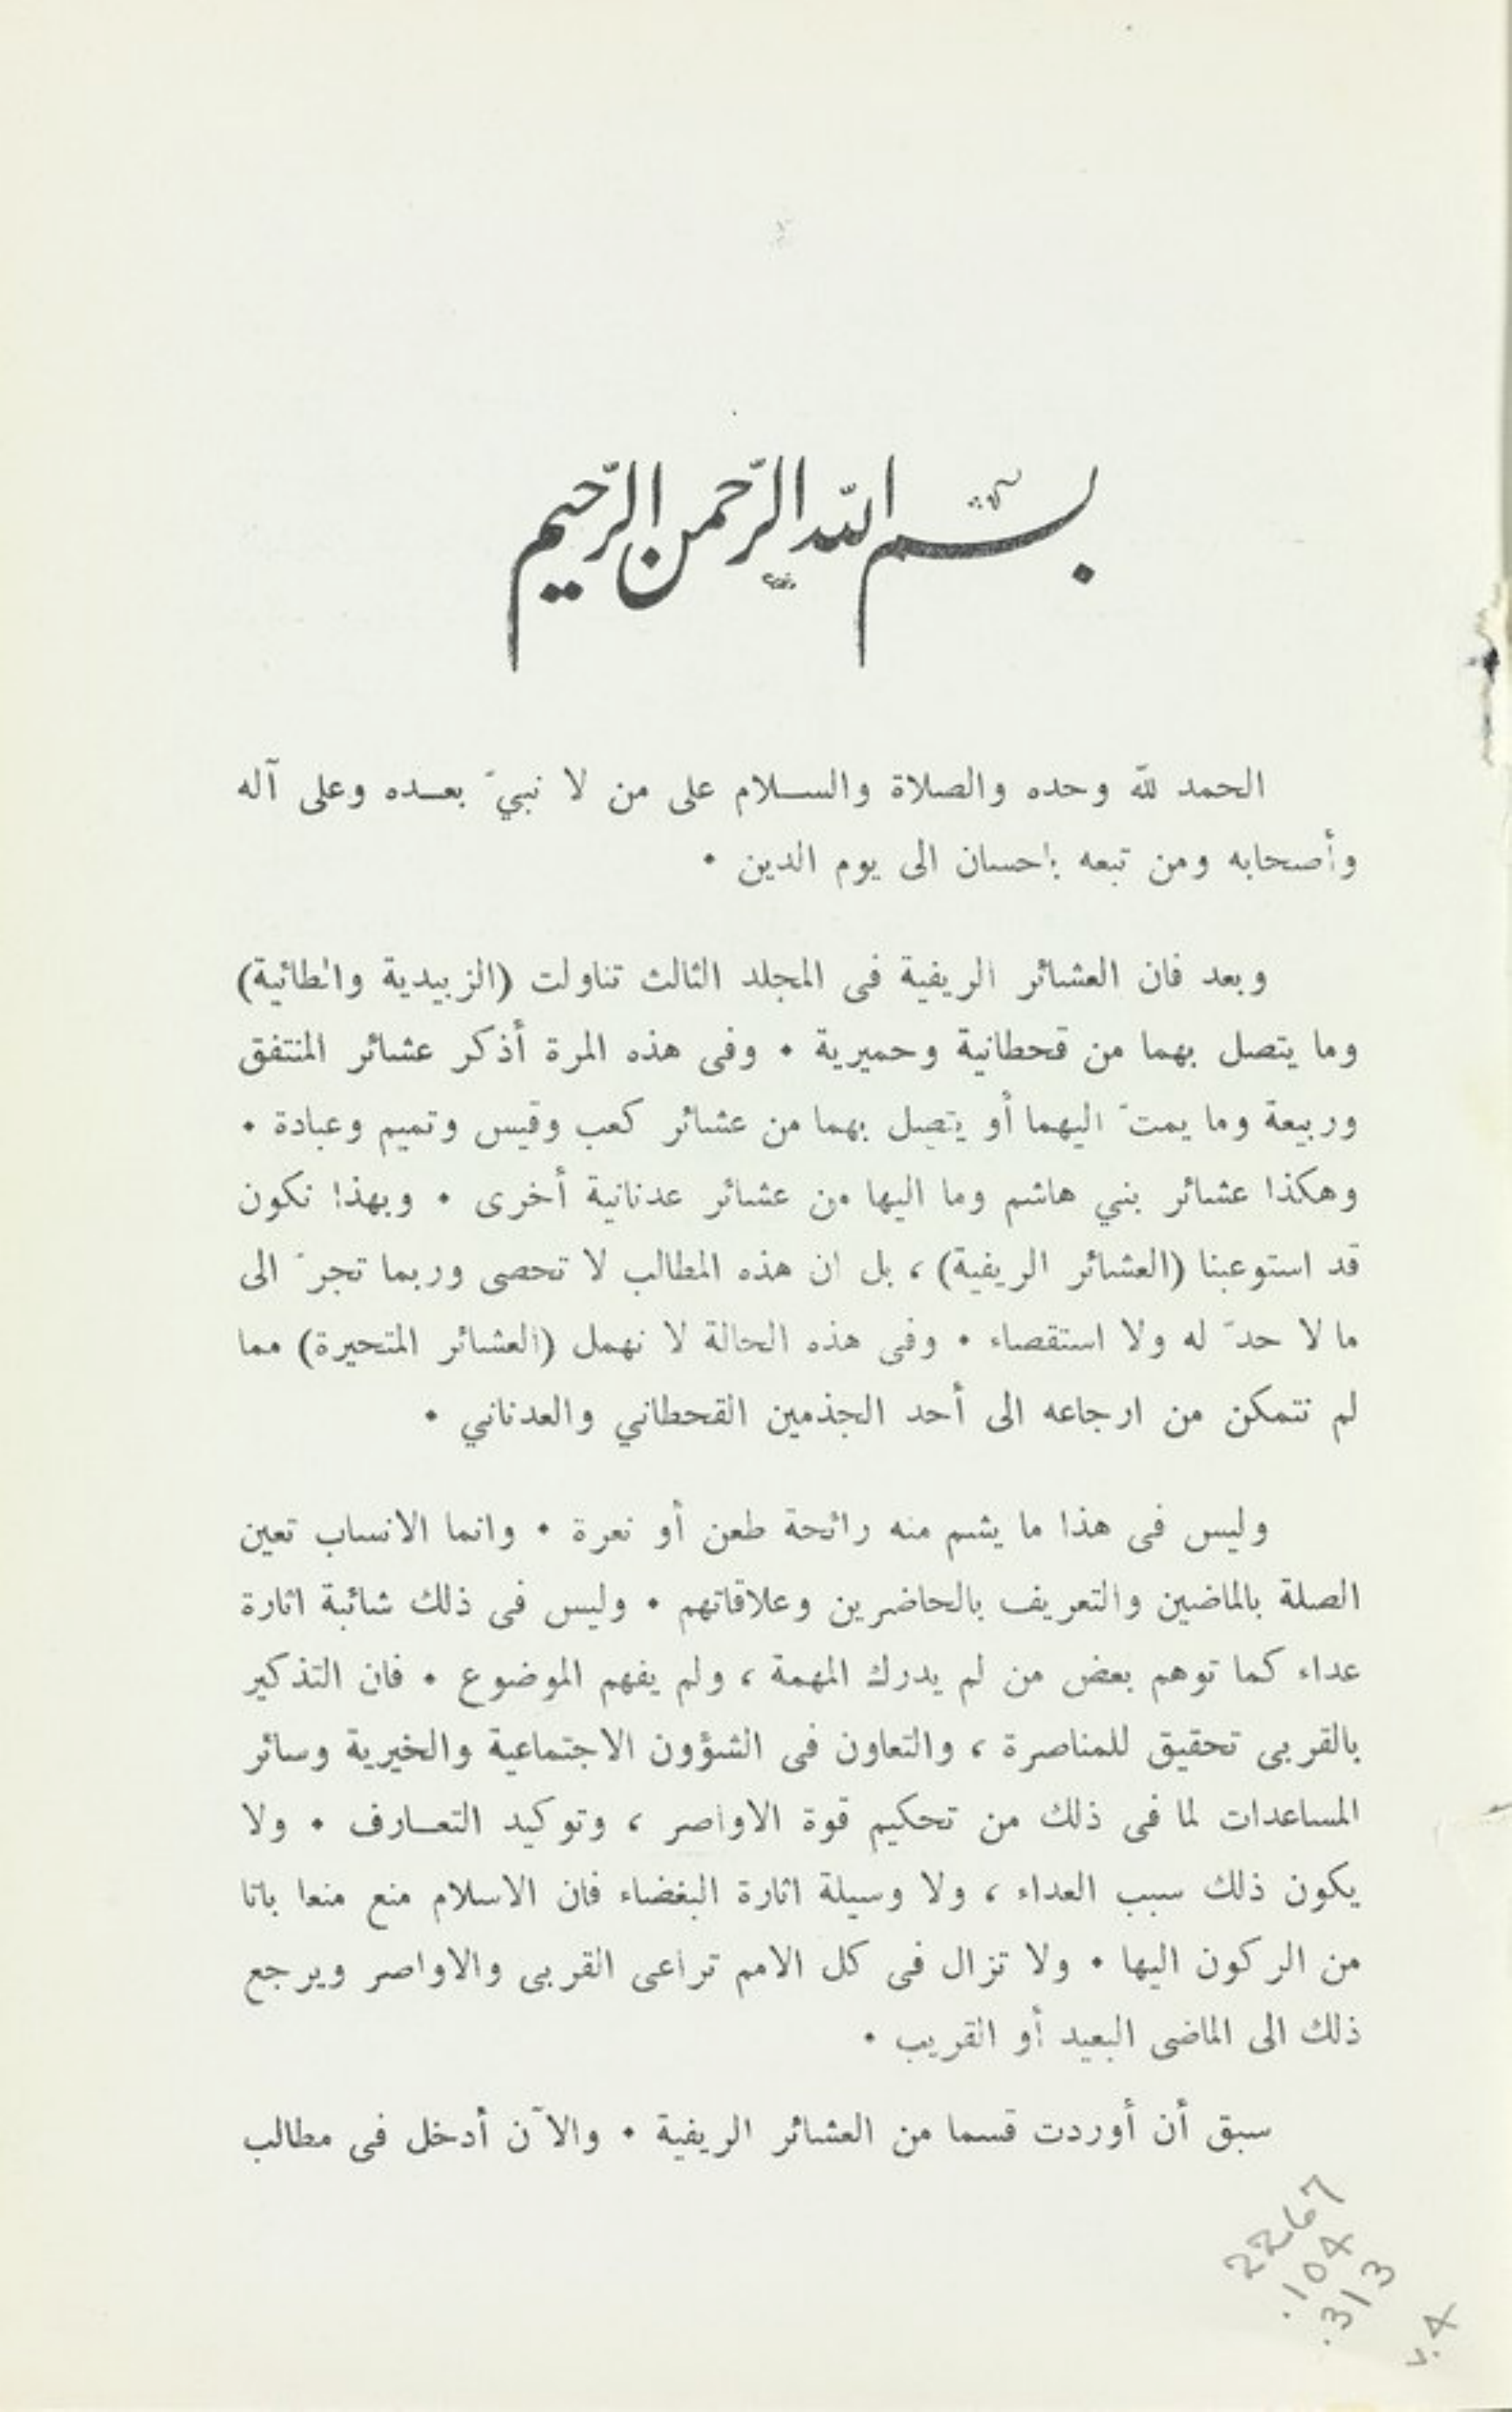 بسم الله الرّحمن الرّحيم
الحمد للّه وحده والصلاة والسـلام على من لا نبيّ بعـده وعلى آله
وأصحابه ومن تبعه باحسان الى يوم الدين ٠
وبعد فان العشائر الريفية فى المجلد الثالث تناولت (الزبيدية والطائية)
وما يتصل بهما من قحطانية وحميرية ٠ وفى هذه المرة أذكر عشائر المنتفق
وربيعة وما يمتّ اليهما أو يتصل بهما من عشائر كعب وقيس وتميم وعبادة ٠
وهكذا عشائر بني هاشم وما اليها من عشائر عدنانية أخرى ٠ وبهذا نكون
قد استوعبنا (العشائر الريفية) ، بل ان هذه المطالب لا تحصى وربما تجرّ الى
ما لا حدّ له ولا استقصاء ٠ وفى هذه الحالة لا نهمل (العشائر المتحيرة) مما
لم نتمكن من ارجاعه الى أحد الجذمين القحطاني والعدناني ٠
وليس فى هذا ما يشم منه رائحة طعن أو نعرة ٠ وانما الانساب تعين
الصلة بالماضين والتعريف بالحاضرين وعلاقاتهم ٠ وليس فى ذلك شائبة اثارة
عداء كما توهم بعض من لم يدرك المهمة ، ولم يفهم الموضوع ٠ فان التذكير
بالقربى تحقيق للمناصرة ، والتعاون فى الشؤون الاجتماعية والخيرية وسائر
المساعدات لما فى ذلك من تحكيم قوة الاواصر ، وتوكيد التعـارف ٠ ولا
يكون ذلك سبب العداء ، ولا وسيلة اثارة البغضاء فان الاسلام منع منعا باتا
من الركون اليها ٠ ولا تزال فى كل الامم تراعى القربى والاواصر ويرجع
ذلك الى الماضى البعيد أو القريب ٠
سبق أن أوردت قسما من العشائر الريفية ٠ والآن أدخل فى مطالب
2267
.104
.313
v.4